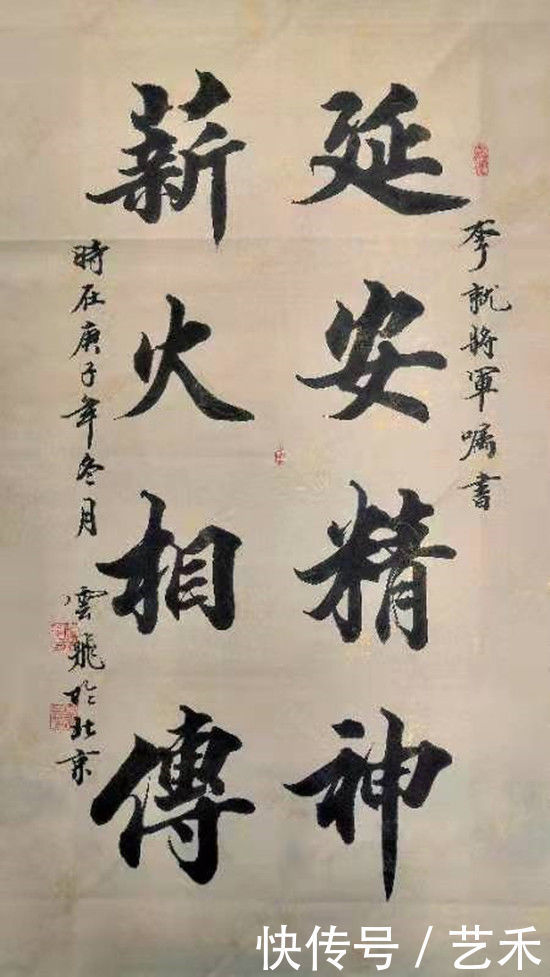 李就將軍嘱書
延安精神
薪火相傳
時在庚子年冬月
雲飛於北京
快传号 / 艺禾